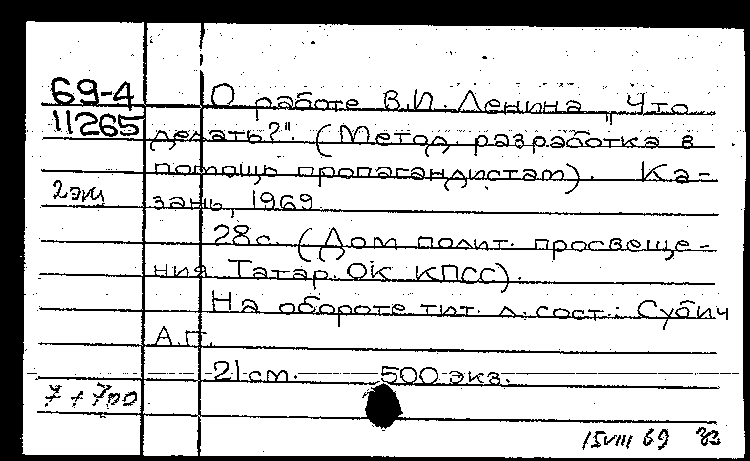 69-4
11265
О работе В.И. Ленина „Что
делать?". (Метод. разработка в
помощь пропагандистам). Ка-
2 экз
зань, 1969.
28 с. (Дом полит. просвеще-
ния Татар. ОК КПСС).
На обороте тит. л. сост.: Субич
А.Г.
21 см. 500 экз.
15 VIII 69